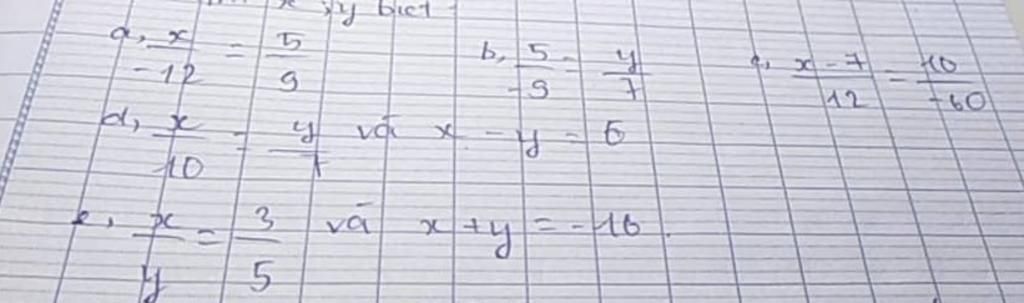 x, y biết
a, x/-12 = 5/9 b, 5/-9 = y/7 c, x-7/12 = 10/-60
d, x/10 = y/7 và x - y = 6
e, x/y = 3/5 và x + y = -16.